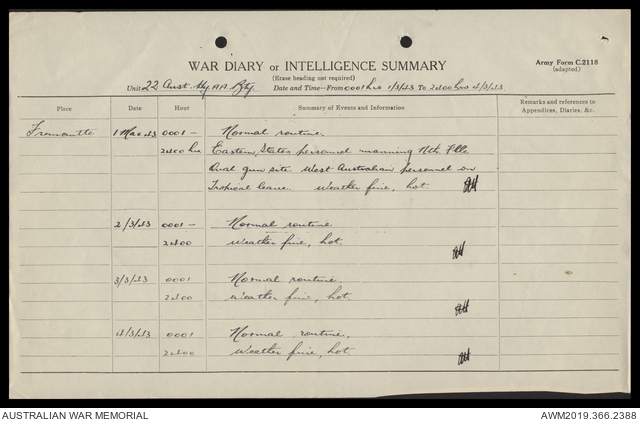 WAR DIARY or INTELLIGENCE SUMMARY
Army Form C.2118
(adapted)
(Erase heading not required)
Unit 22 Aust. Hy. AA. Bty. Date and Time—From 0001 hrs 1/3/43 To 2400 hrs 4/3/43
Place Date Hour Summary of Events and Information Remarks and references to Appendices, Diaries, &c.
Fremantle 1 Mar 43 0001 – Normal routine.
2400 hrs Eastern States personnel manning Nth
gun site West Australian personnel on
Tropical leave. Weather fine, hot
2/3/43 0001 – Normal routine
2400 Weather fine, hot.
3/3/43 0001 Normal routine.
2400 Weather fine, hot.
4/3/43 0001 Normal routine,
2400 Weather fine, hot
AUSTRALIAN WAR MEMORIAL
AWM2019.366.2388